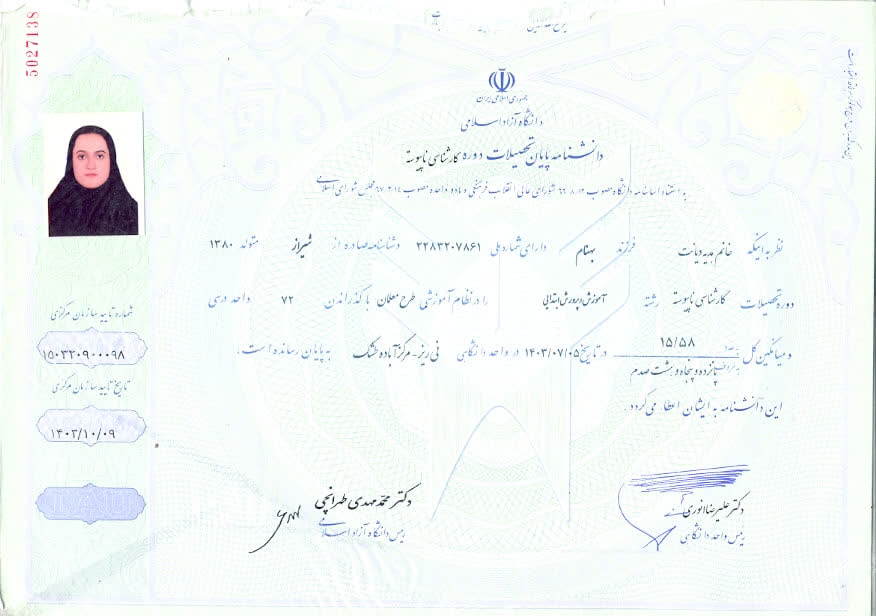 5027138
جمهوری اسلامی ایران
دانشگاه آزاد اسلامی
دانشنامه پایان تحصیلات دوره کارشناسی ناپیوسته
به استناد اساسنامه دانشگاه مصوب شورای عالی انقلاب فرهنگی و ماده واحده مصوب مجلس شورای اسلامی
نظر به اینکه خانم هدیه دیانت فرزند بهنام دارای شماره ملی ۲۲۸۳۲۰۷۸۶۱ و شناسنامه صادره از شیراز متولد ۱۳۸۰
دوره تحصیلات کارشناسی ناپیوسته رشته آموزش و پرورش ابتدایی را در نظام آموزشی طرح معلمان با گذراندن ۷۲ واحد درسی
و میانگین کل به عدد ۱۵/۵۸ به حروف پانزده و پنجاه و هشت صدم در تاریخ ۱۴۰۳/۰۷/۰۵ در واحد دانشگاهی نی ریز - مرکز آباده طشک به پایان رسانده است.
این دانشنامه به ایشان اعطا می گردد.
دکتر علیرضا انوری
رئیس واحد دانشگاهی
دکتر محمد مهدی طهرانچی
رئیس دانشگاه آزاد اسلامی
شماره تایید سازمان مرکزی
۱۵۰۳۳۰۹۰۰۰۹۸
تاریخ تایید سازمان مرکزی
۱۴۰۳/۱۰/۰۹
IAU